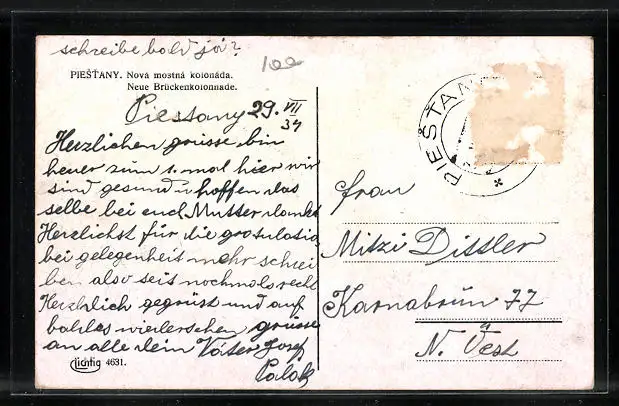 schreibe bald ja?
100
PIEŠŤANY. Nová mostná kolonáda.
Neue Brückenkolonnade.
Piestany 29. VII
34
Herzlichen grüsse bin
heuer zum 1. mal hier wir
sind gesund u hoffen das
selbe bei euch Mutter dankt
Herzlichst für die gratulatio
bei gelegenheit mehr schrei
ben also seit nochmals recht
Herzlich gegrüst und auf
baldes wiedersehen grüsse
an alle dein Vater Josef
Polak
Lichtig 4631.
PIEŠŤANY
Frau
Mitzi Dittler
Karnabrun 77
N. Öest